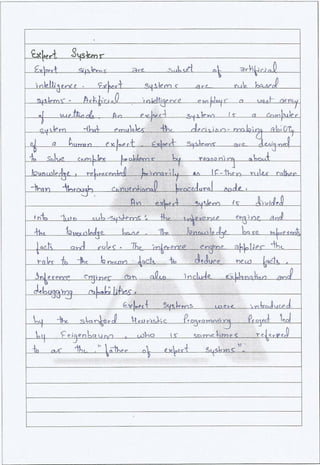 Expert Systems
Expert systems are subset of artificial
intelligence. Expert systems are rule based
systems. Artificial intelligence employs a vast array
of methods. An expert system is a computer
system that emulates the decision-making ability
of a human expert. Expert systems are designed
to solve complex problems by reasoning about
knowledge, represented primarily as If-then rules rather
than through conventional procedural code.
An expert system is divided
into two sub-systems: the inference engine and
the knowledge base. The knowledge base represents
facts and rules. The inference engine applies the
rules to the known facts to deduce new facts.
Inference engines can also include explanation and
debugging capabilities.
Expert systems were introduced
by the stanford Heuristic Programming Project led
by Feigenbaum, who is sometimes referred
to as the "father of expert systems".